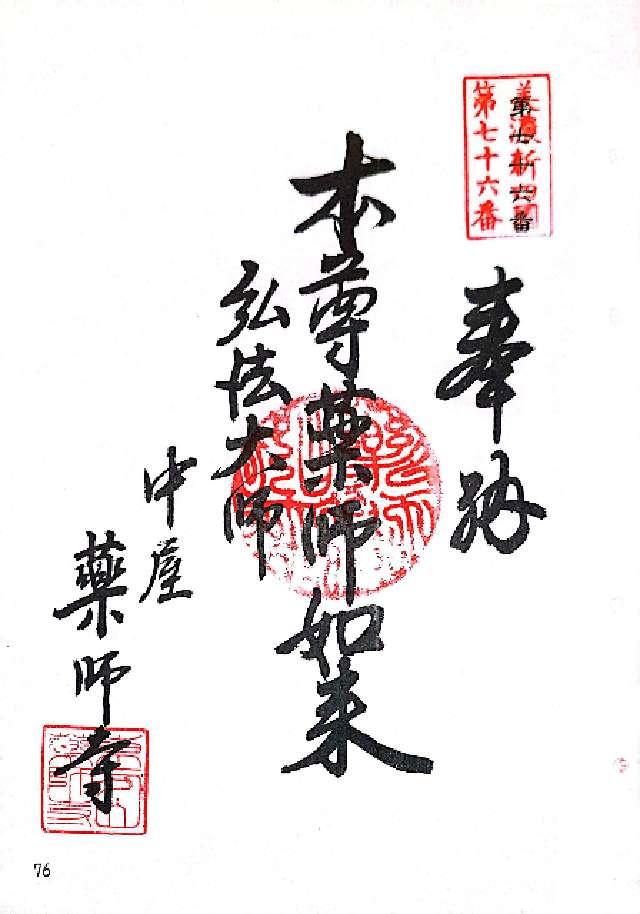 美濃新四国
第七十六番
第七十六番
奉拝
本尊薬師如来
弘法大師
中屋
薬師寺
76